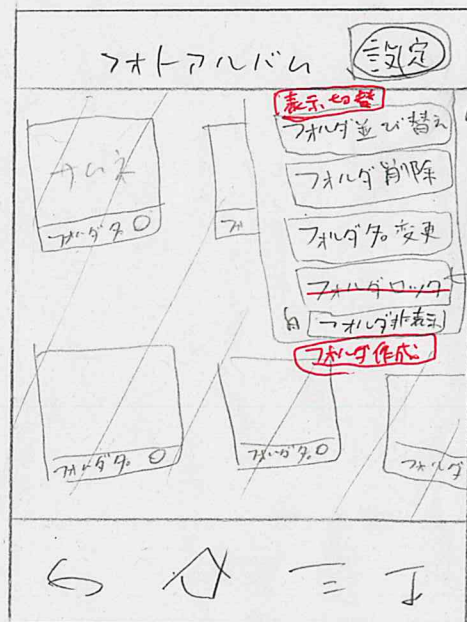 フォトアルバム
設定
表示切替
フォルダ並び替え
フォルダ削除
フォルダ名変更
フォルダロック
フォルダ非表示
フォルダ作成
サムネ
フォルダ名
フォ
フォルダ名
フォルダ名
フォルダ